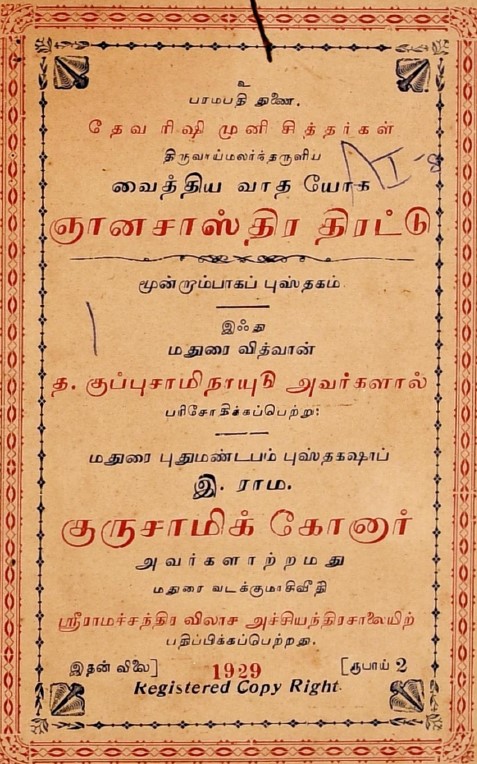 உ
பரமபதி துணை.
தேவ ரிஷி முனி சித்தர்கள்
திருவாய்மலர்ந்தருளிய
வைத்திய வாத யோக
ஞானசாஸ்திர திரட்டு
மூன்றும்பாகப் புஸ்தகம்
இஃது
மதுரை வித்வான்
த. குப்புசாமிநாயுடு அவர்களால்
பரிசோதிக்கப்பெற்று:
மதுரை புதுமண்டபம் புஸ்தகஷாப்
இ. ராம.
குருசாமிக் கோனார்
அவர்களாற்றமது
மதுரை வடக்குமாசிவீதி
ஸ்ரீராமச்சந்திர விலாச அச்சியந்திரசாலையிற்
பதிப்பிக்கப்பெற்றது.
இதன் விலை] 1929 [ரூபாய் 2
Registered Copy Right.